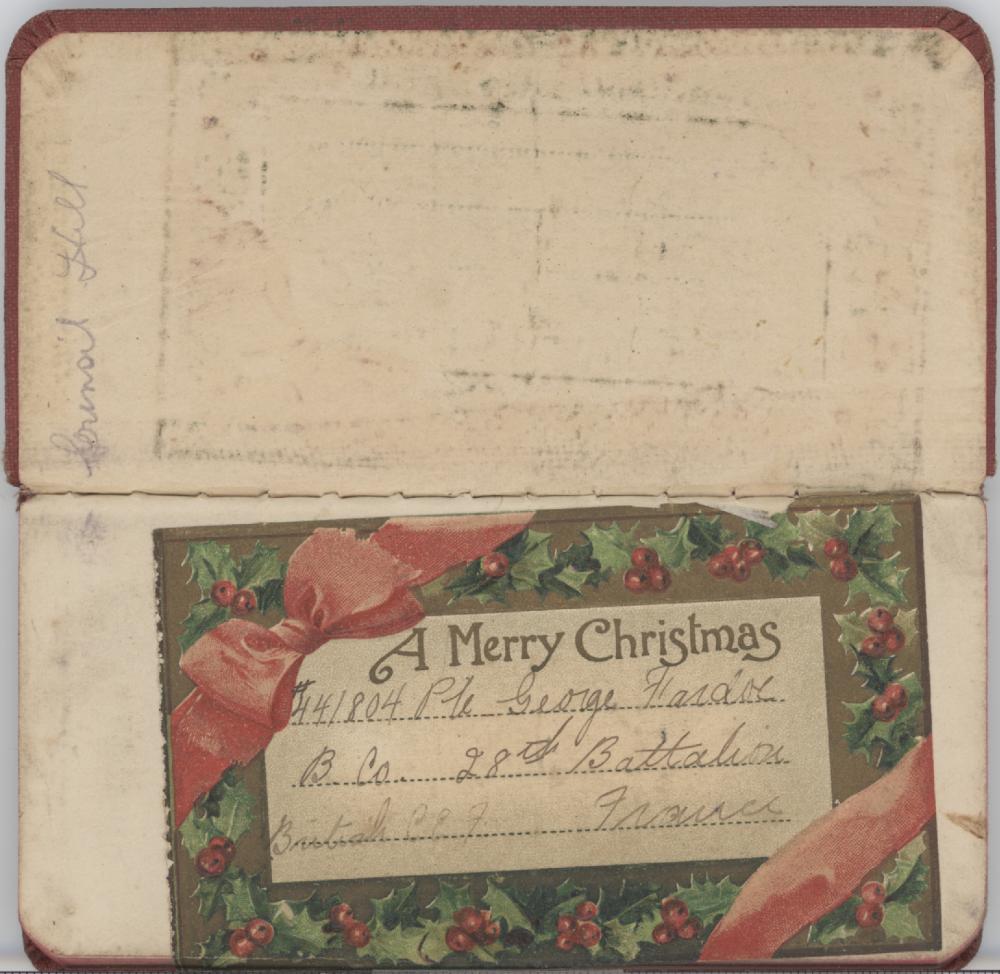 Hill
A Merry Christmas
#441804 Pte George Fardoe
B. Co. 28th Battalion
British C E F. France